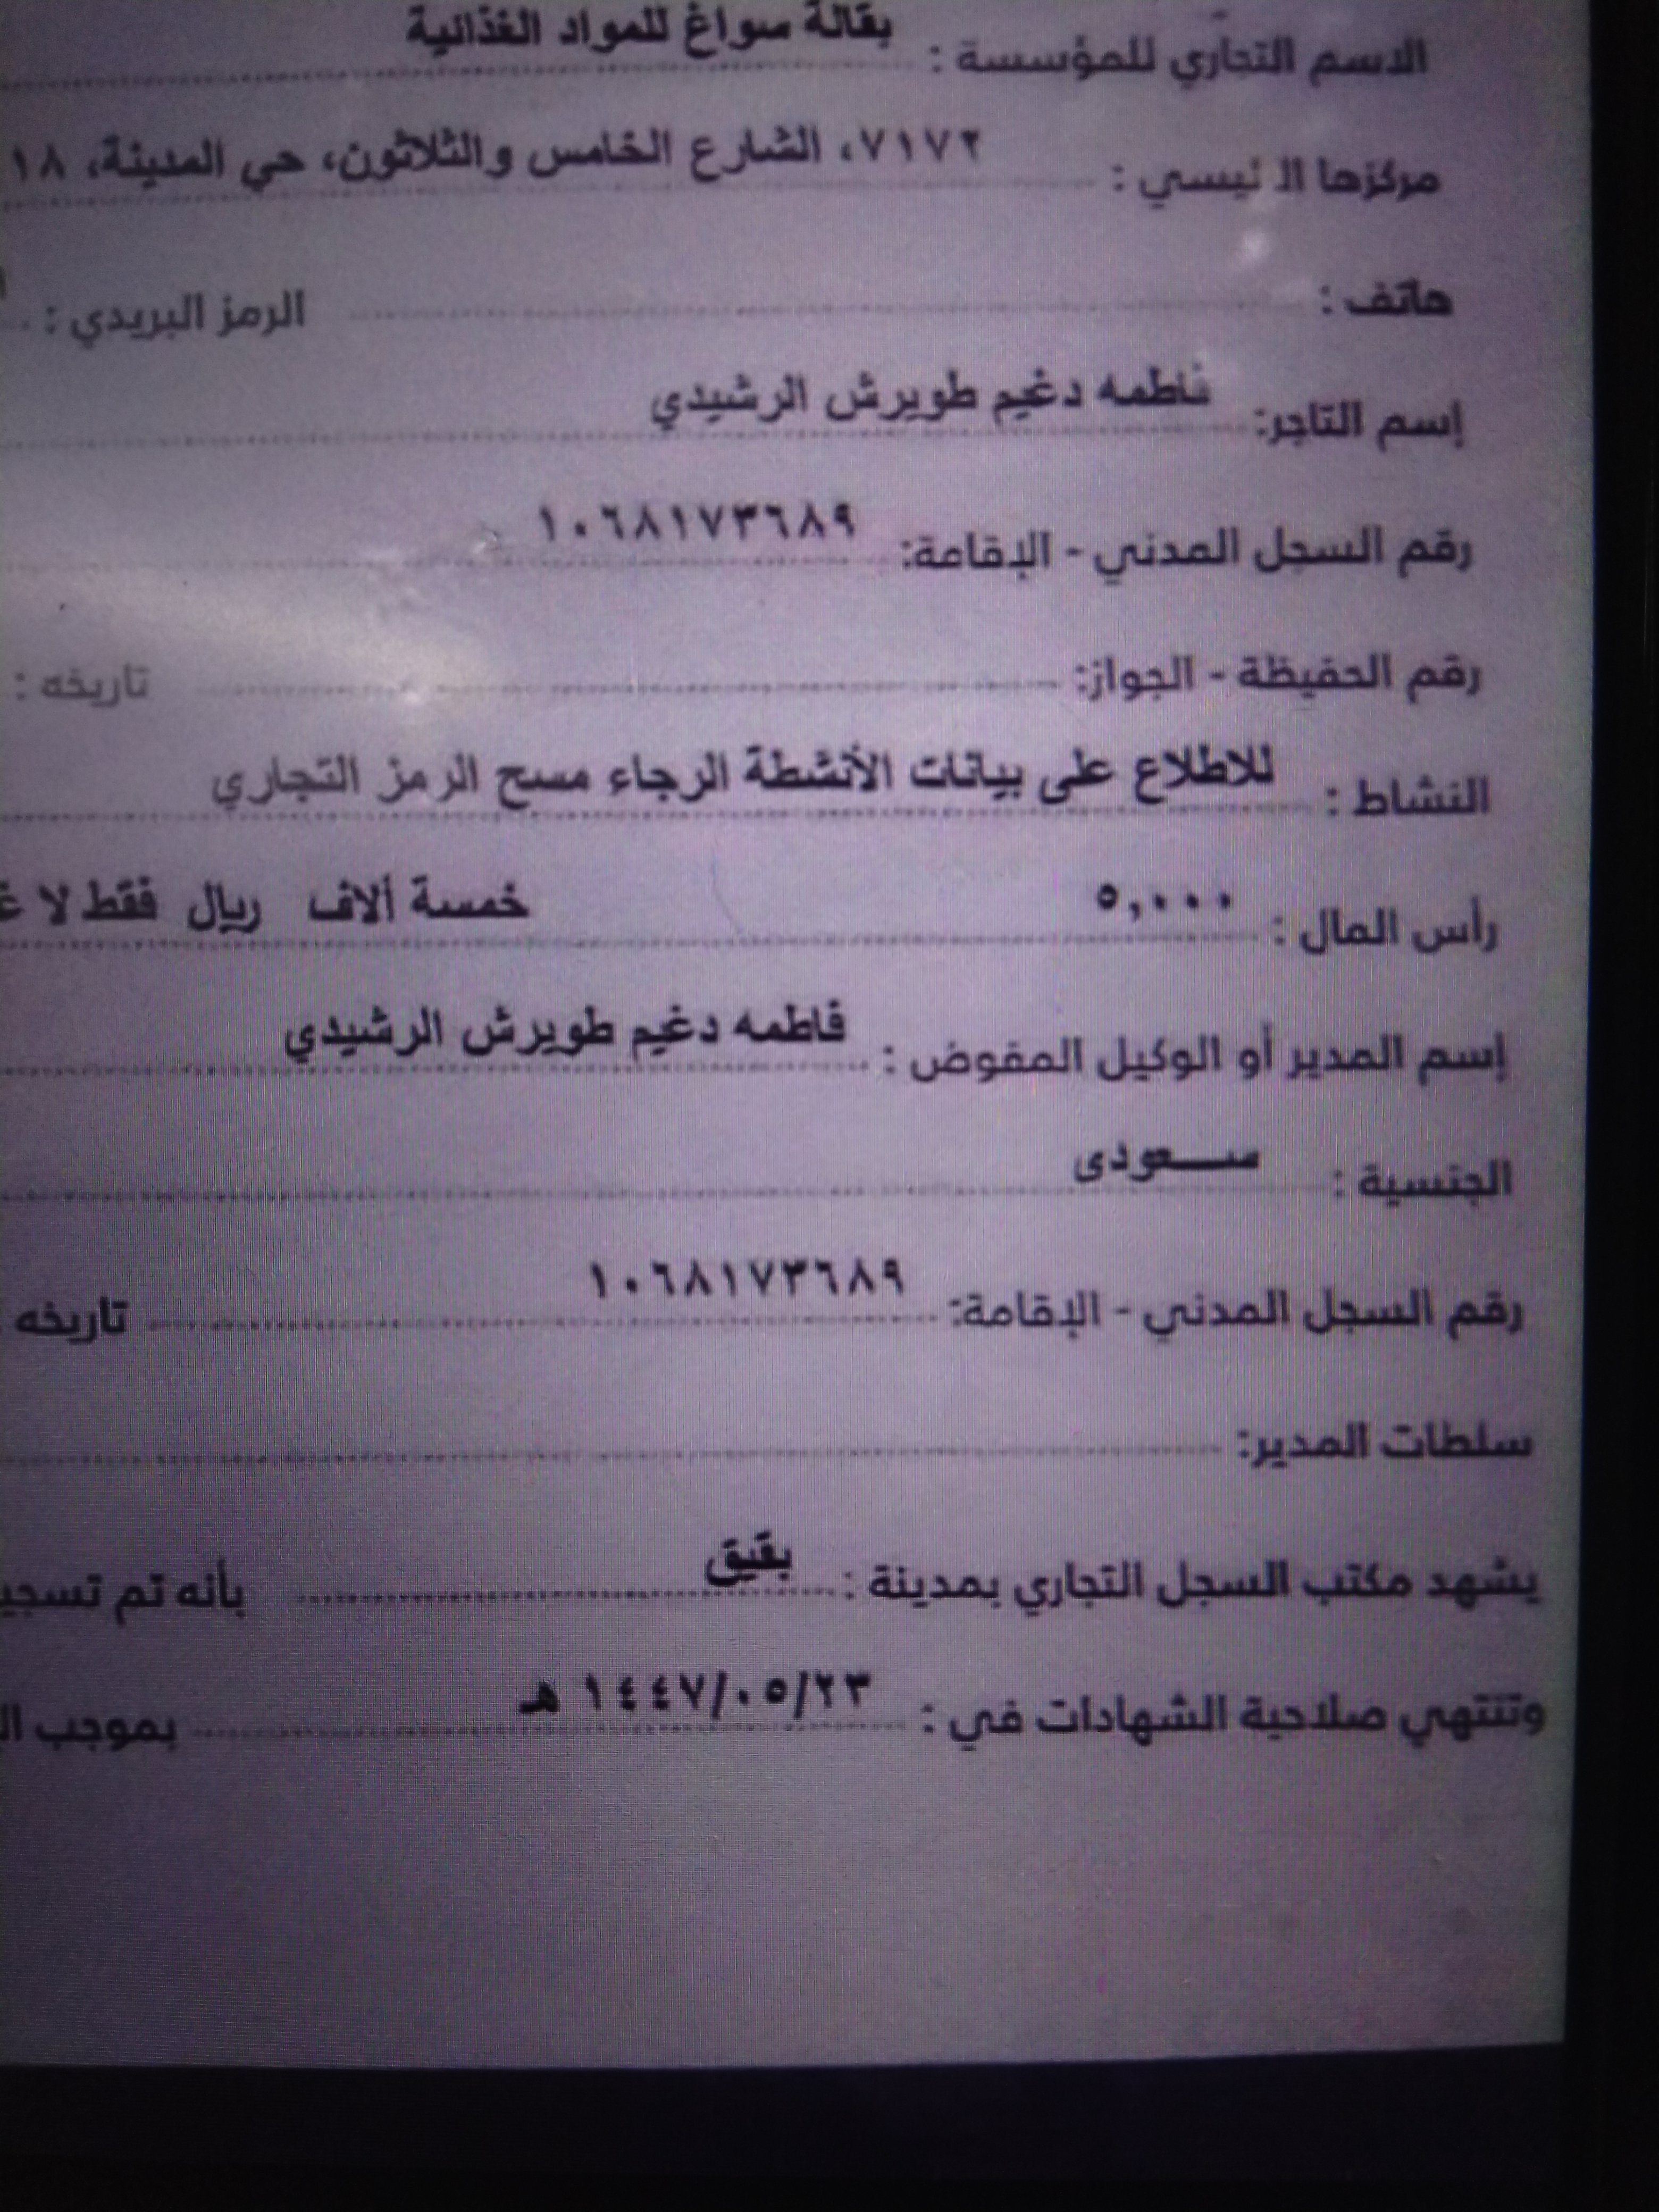 الاسم التجاري للمؤسسة : بقالة سواغ للمواد الغذائية
مركزها الرئيسي : ٧١٧٢، الشارع الخامس والثلاثون، حي المدينة، ١٨
هاتف : الرمز البريدي :
إسم التاجر: فاطمه دغيم طويرش الرشيدي
رقم السجل المدني - الإقامة: ١٠٦٨١٧٣٦٨٩
رقم الحفيظة - الجواز: تاريخه :
النشاط : للاطلاع على بيانات الأنشطة الرجاء مسح الرمز التجاري
رأس المال : ٥,٠٠٠ خمسة ألاف ريال فقط لا
إسم المدير أو الوكيل المفوض : فاطمه دغيم طويرش الرشيدي
الجنسية : سـعودى
رقم السجل المدني - الإقامة: ١٠٦٨١٧٣٦٨٩ تاريخه
سلطات المدير:
يشهد مكتب السجل التجاري بمدينة : بقيق بأنه تم
وتنتهي صلاحية الشهادات في : ١٤٤٧/٠٥/٢٣ هـ بموجب